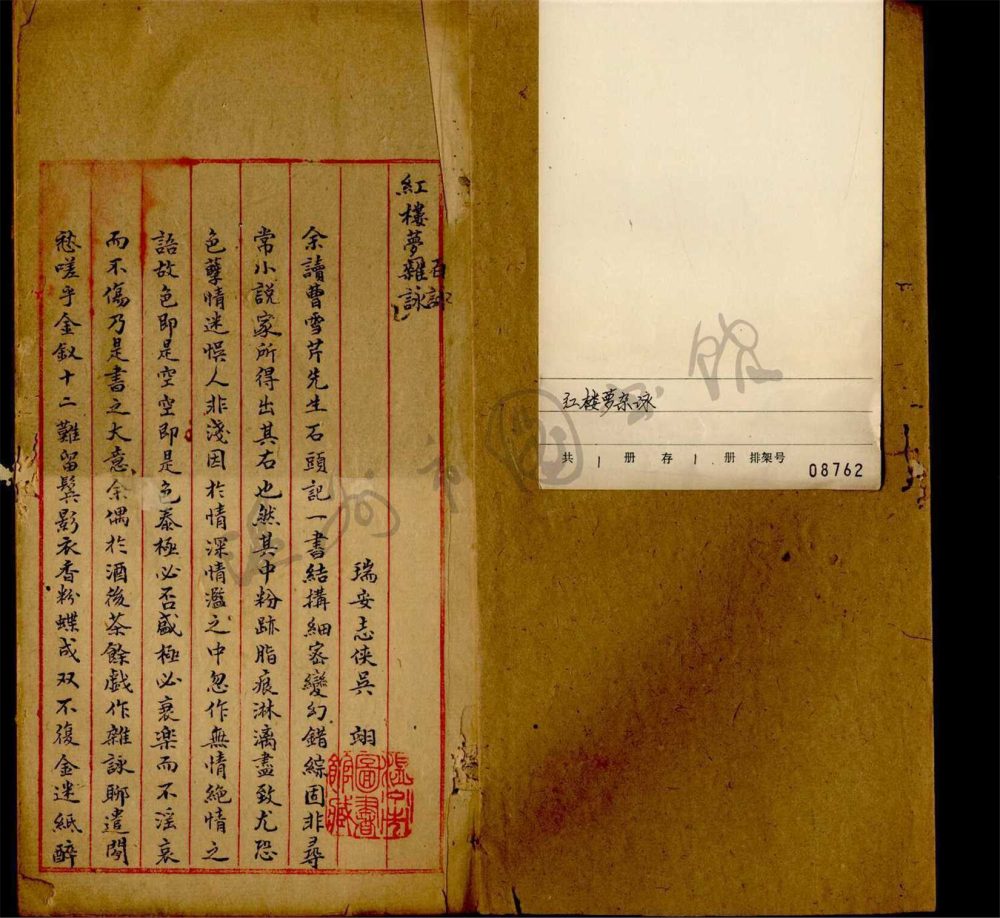 紅樓夢雜詠
百詠
瑞安志俠吳 翊
余讀曹雪芹先生石頭記一書結搆細密變幻錯綜固非尋
常小說家所得出其右也然其中粉跡脂痕淋漓盡致尤恐
色孽情迷悞人非淺因於情深情濫之中忽作無情絕情之
語故色即是空空即是色泰極必否盛極必衰樂而不淫哀
而不傷乃是書之大意余偶於酒後茶餘戲作雜詠聊遣閒
愁嗟乎金釵十二難留鬓影衣香粉蝶成双不復金迷紙醉
圖書館藏
红楼梦杂咏
共 1 册 存 1 册 排架号
08762